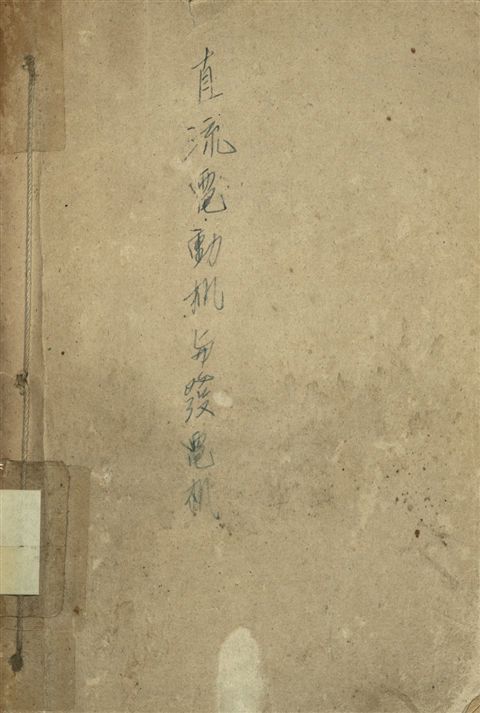 直流電動机与發電机